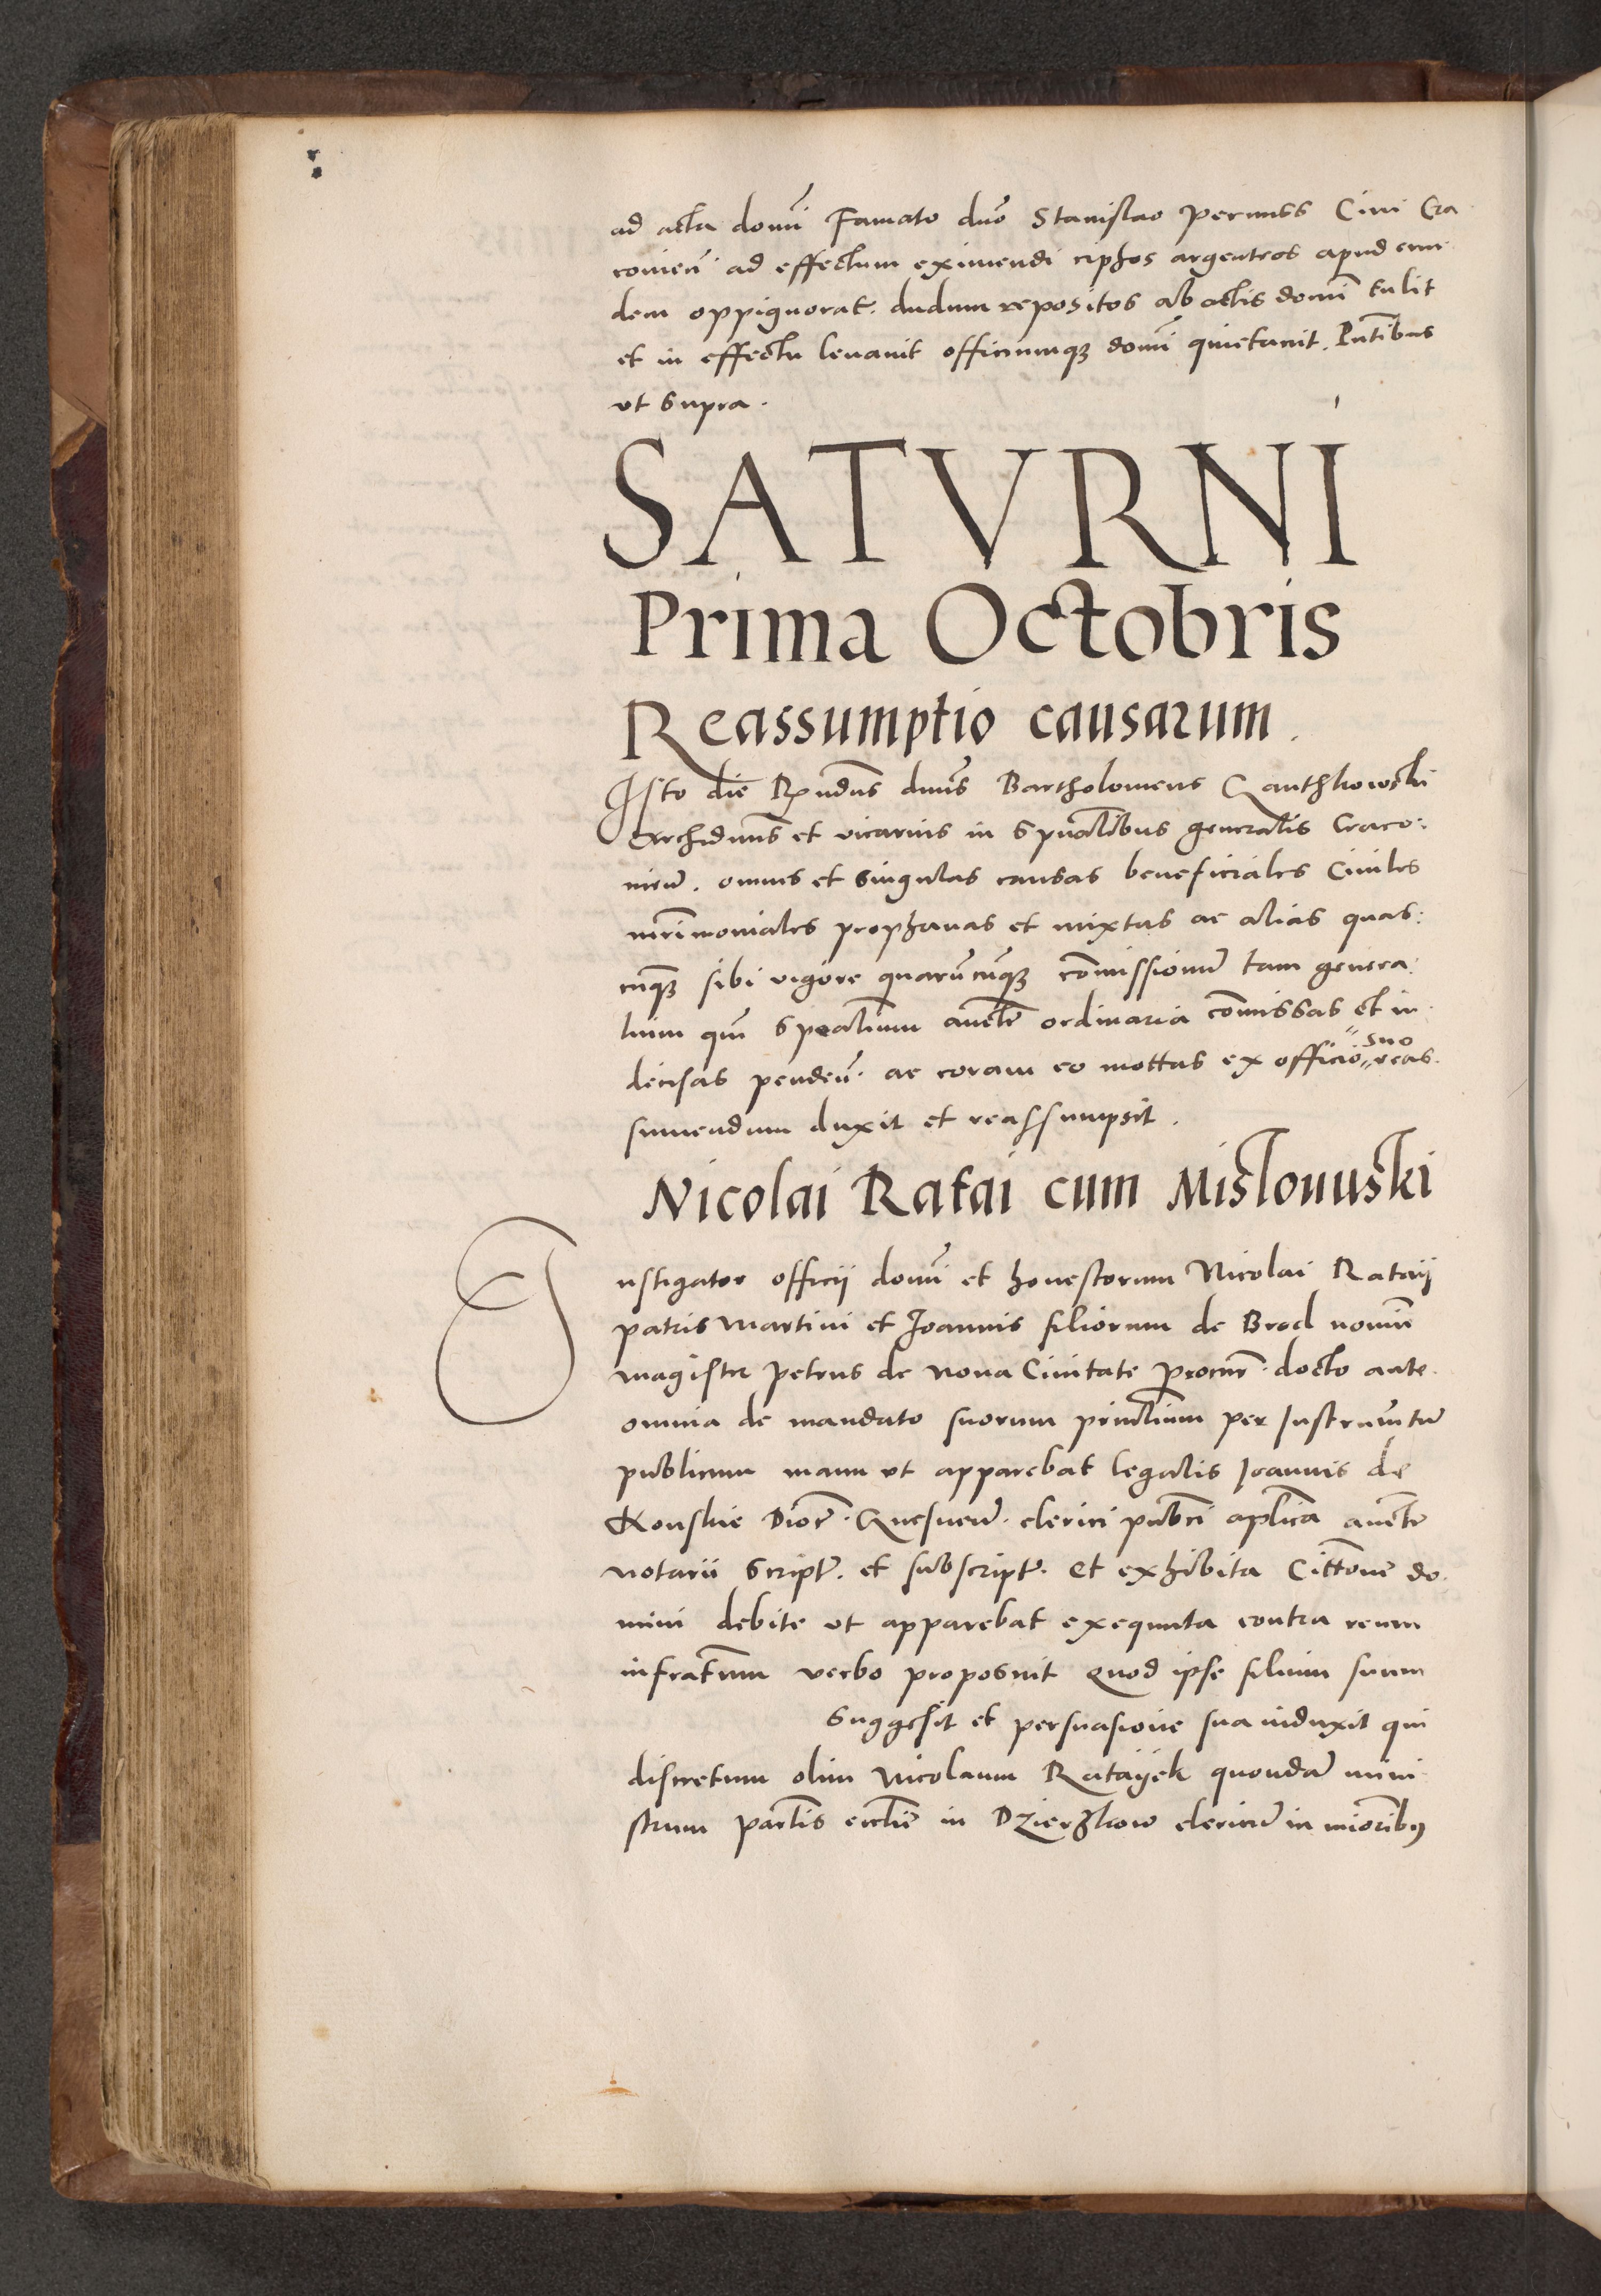 ad acta domi Famato dno Stanislao Pernuss Civi Cra
covien ad effectum eximendi ciphos argenteos apud eun
dem oppignorat. dudum repositos ab actis domi tulit
et in effectu levavit officiumqz domi quietavit. Pntibus
ut supra.
SATVRNI
Prima Octobris
Reassumptio causarum.
Isto die Rndus dnus Bartholomeus Ganthkowski
Archidnus et vicarius in spualibus generalis Craco:
vien. omnes et singulas causas beneficiales Civiles
mrimoniales prophanas et mixtas ac alias quas:
cunqz sibi vigore quarucunqz comissionu tam genera
lium qm spealium aucte ordinaria comissas et in
decisas penden. ac coram eo mottas ex officio suo reas
sumendum duxit et reassumpsit.
Nicolai Ratai cum Mislouuski
Instigator officii domi et honestorum Nicolai Rataij
patris Martini et Joannis filiorum de Brod nomi
magister Petrus de nova Civitate Procur. docto ante
omnia de mandato suorum prinlium per Instrumtu
publicum manu ut apparebat legalis Joannis de
Konskie Dioc. Gnesnen. clerici publci aplica aucte
notarii script. et subscript. et exhibita Cittone do
mini debite ut apparebat exequuta contra reum
infratum verbo proposuit Quod ipse filium suum
suggesit et persuasione sua induxit qui
discretum olim Nicolaum Ratayek quondam mini
strum parlis ecclie in Dzierzkow clericu in mioribus